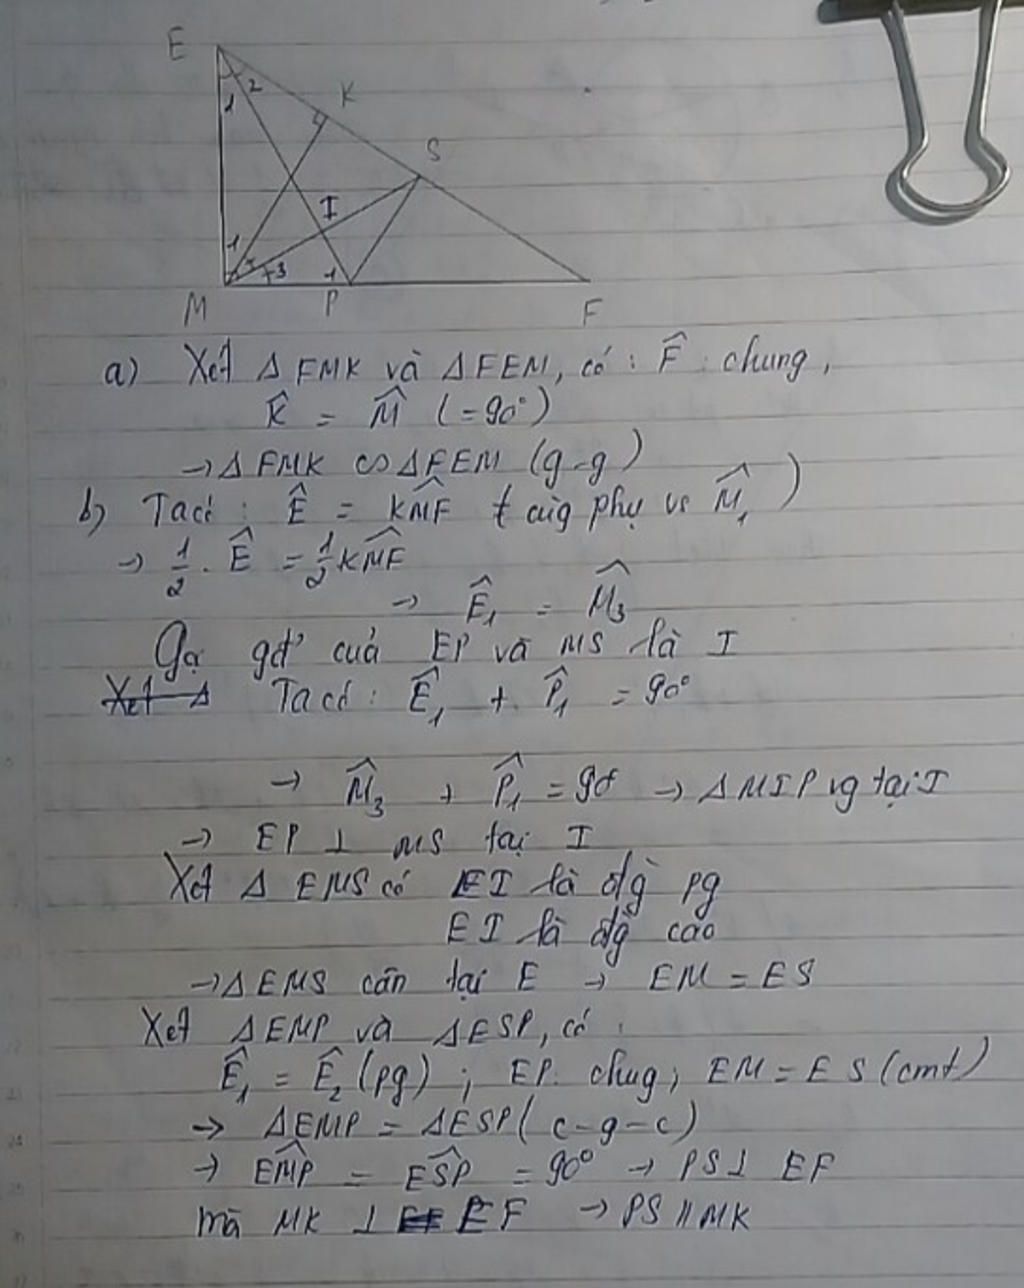 E
2
1
K
S
I
1
2
3
1
M
P
F
a) Xét Δ FMK và Δ FEM, có : F̂ : chung,
K̂ = M̂ (= 90°)
→ Δ FMK ∽ Δ FEM (g-g)
b) Ta có : Ê = KMF̂ ( cùg phụ vs M̂₁ )
→ 1/2 . Ê = 1/2 KMF̂
→ Ê₁ = M̂₃
Gọi gđ' của EP và MS là I
Xét Δ Ta có : Ê₁ + P̂₁ = 90°
→ M̂₃ + P̂₁ = 90° → Δ MIP vg tại I
→ EP ⊥ MS tại I
Xét Δ EMS có EI là đg pg
EI là đg cao
→ Δ EMS cân tại E → EM = ES
Xét Δ EMP và Δ ESP, có :
Ê₁ = Ê₂ (pg) ; EP. chug; EM = ES (cmt)
→ Δ EMP = Δ ESP ( c-g-c)
→ EMP̂ = ESP̂ = 90° → PS ⊥ EF
mà MK ⊥ EF → PS // MK